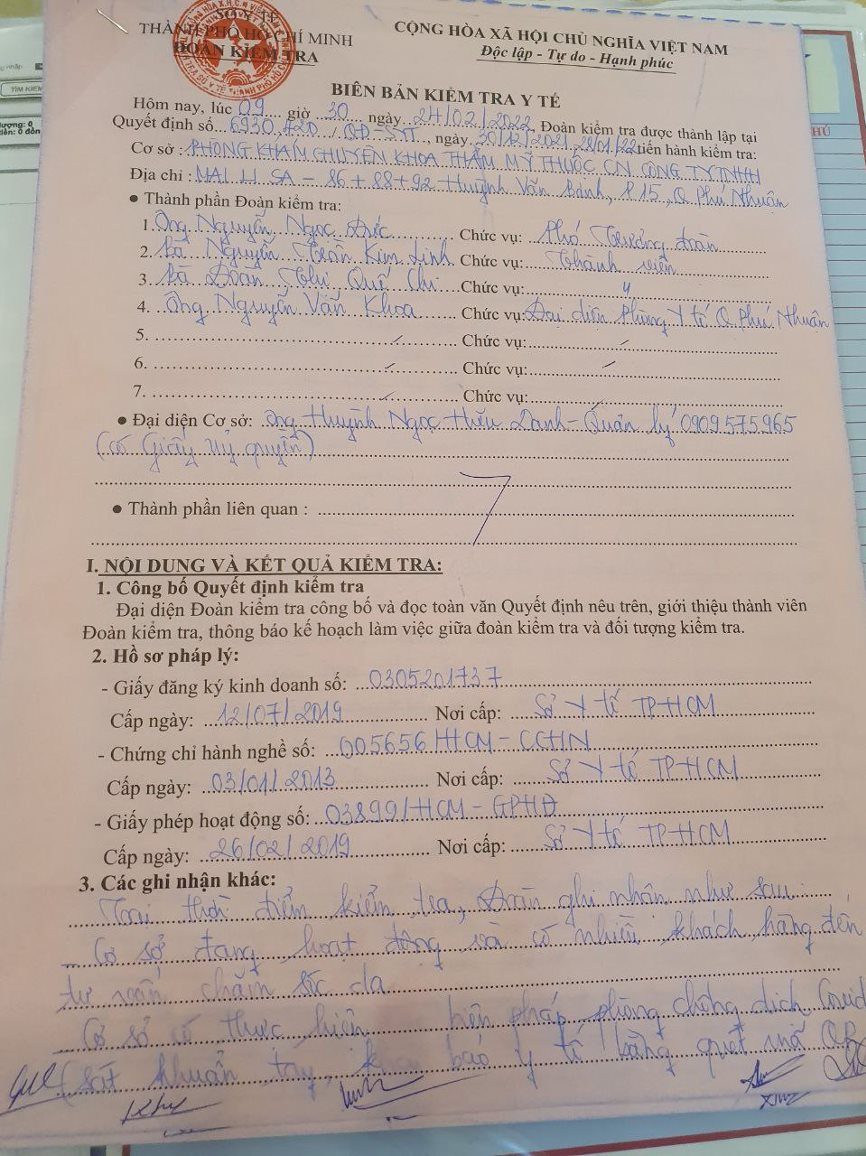 THÀNH PHỐ HỒ CHÍ MINH
ĐOÀN KIỂM TRA
CỘNG HÒA XÃ HỘI CHỦ NGHĨA VIỆT NAM
Độc lập - Tự do - Hạnh phúc
BIÊN BẢN KIỂM TRA Y TẾ
Hôm nay, lúc 09 giờ 30 ngày 24/02/2022, Đoàn kiểm tra được thành lập tại
Quyết định số 6930, /QĐ-SYT, ngày 30/12/2021, tiến hành kiểm tra:
Cơ sở : PHÒNG KHÁM CHUYÊN KHOA THẨM MỸ THUỘC CN CÔNG TY TNHH
Địa chỉ : MAI LI SA - 86+88+92 Huỳnh Văn Bánh, P15, Q Phú Nhuận
● Thành phần Đoàn kiểm tra:
1. Ông Nguyễn Ngọc Đức Chức vụ: Phó Trưởng đoàn
2. Bà Nguyễn Trần Kim Linh Chức vụ: Thành viên
3. Bà Đoàn Thị Quế Chi Chức vụ: "
4. Ông Nguyễn Văn Khoa Chức vụ: Đại diện Phòng Y tế Q Phú Nhuận
5. Chức vụ:
6. Chức vụ:
7. Chức vụ:
● Đại diện Cơ sở: Ông Huỳnh Ngọc Hữu Danh - Quản lý 0909575965
(có Giấy uỷ quyền)
● Thành phần liên quan :
I. NỘI DUNG VÀ KẾT QUẢ KIỂM TRA:
1. Công bố Quyết định kiểm tra
Đại diện Đoàn kiểm tra công bố và đọc toàn văn Quyết định nêu trên, giới thiệu thành viên
Đoàn kiểm tra, thông báo kế hoạch làm việc giữa đoàn kiểm tra và đối tượng kiểm tra.
2. Hồ sơ pháp lý:
- Giấy đăng ký kinh doanh số: 0305201737
Cấp ngày: 12/07/2019 Nơi cấp: Sở Y tế TP-HCM
- Chứng chỉ hành nghề số: 005656/HCM-CCHN
Cấp ngày: 03/01/2013 Nơi cấp: Sở Y tế TP-HCM
- Giấy phép hoạt động số: 03899/HCM-GPHĐ
Cấp ngày: 26/02/2019 Nơi cấp: Sở Y tế TP-HCM
3. Các ghi nhận khác:
Tại thời điểm kiểm tra, Đoàn ghi nhận như sau:
Cơ sở đang hoạt động và có nhiều khách hàng đến
tư vấn chăm sóc da
Cơ sở có thực hiện biện pháp phòng chống dịch Covid
(sát khuẩn tay, khai báo y tế bằng quét mã QR